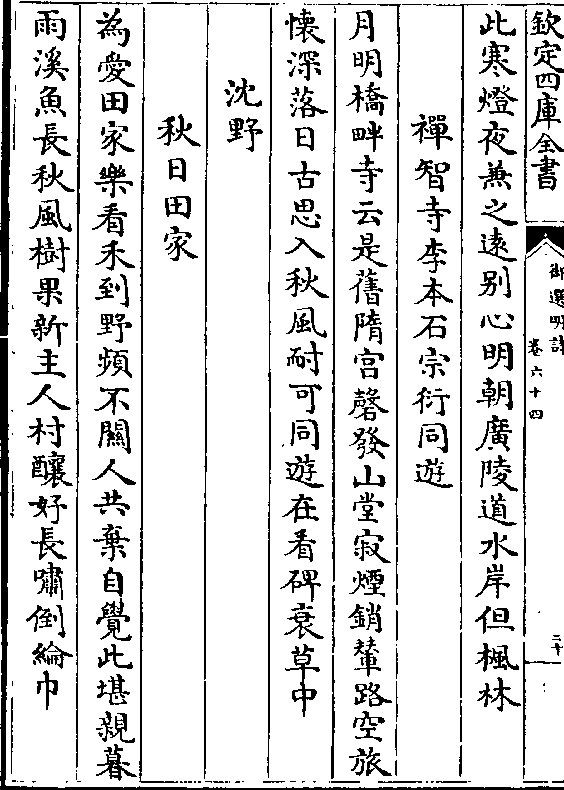 欽定四庫全書
御選明詩
卷六十四
二十
此寒燈夜兼之逺别心明朝廣陵道水岸但楓林
禪智寺李本石宗衍同遊
月明橋畔寺云是舊隋宫磬發山堂寂煙銷輦路空旅
懷深落日古思入秋風耐可同遊在看碑衰草中
沈野
秋日田家
為愛田家樂看禾到野頻不關人共棄自覺此堪親暮
雨溪魚長秋風樹果新主人村釀好長嘯倒綸巾